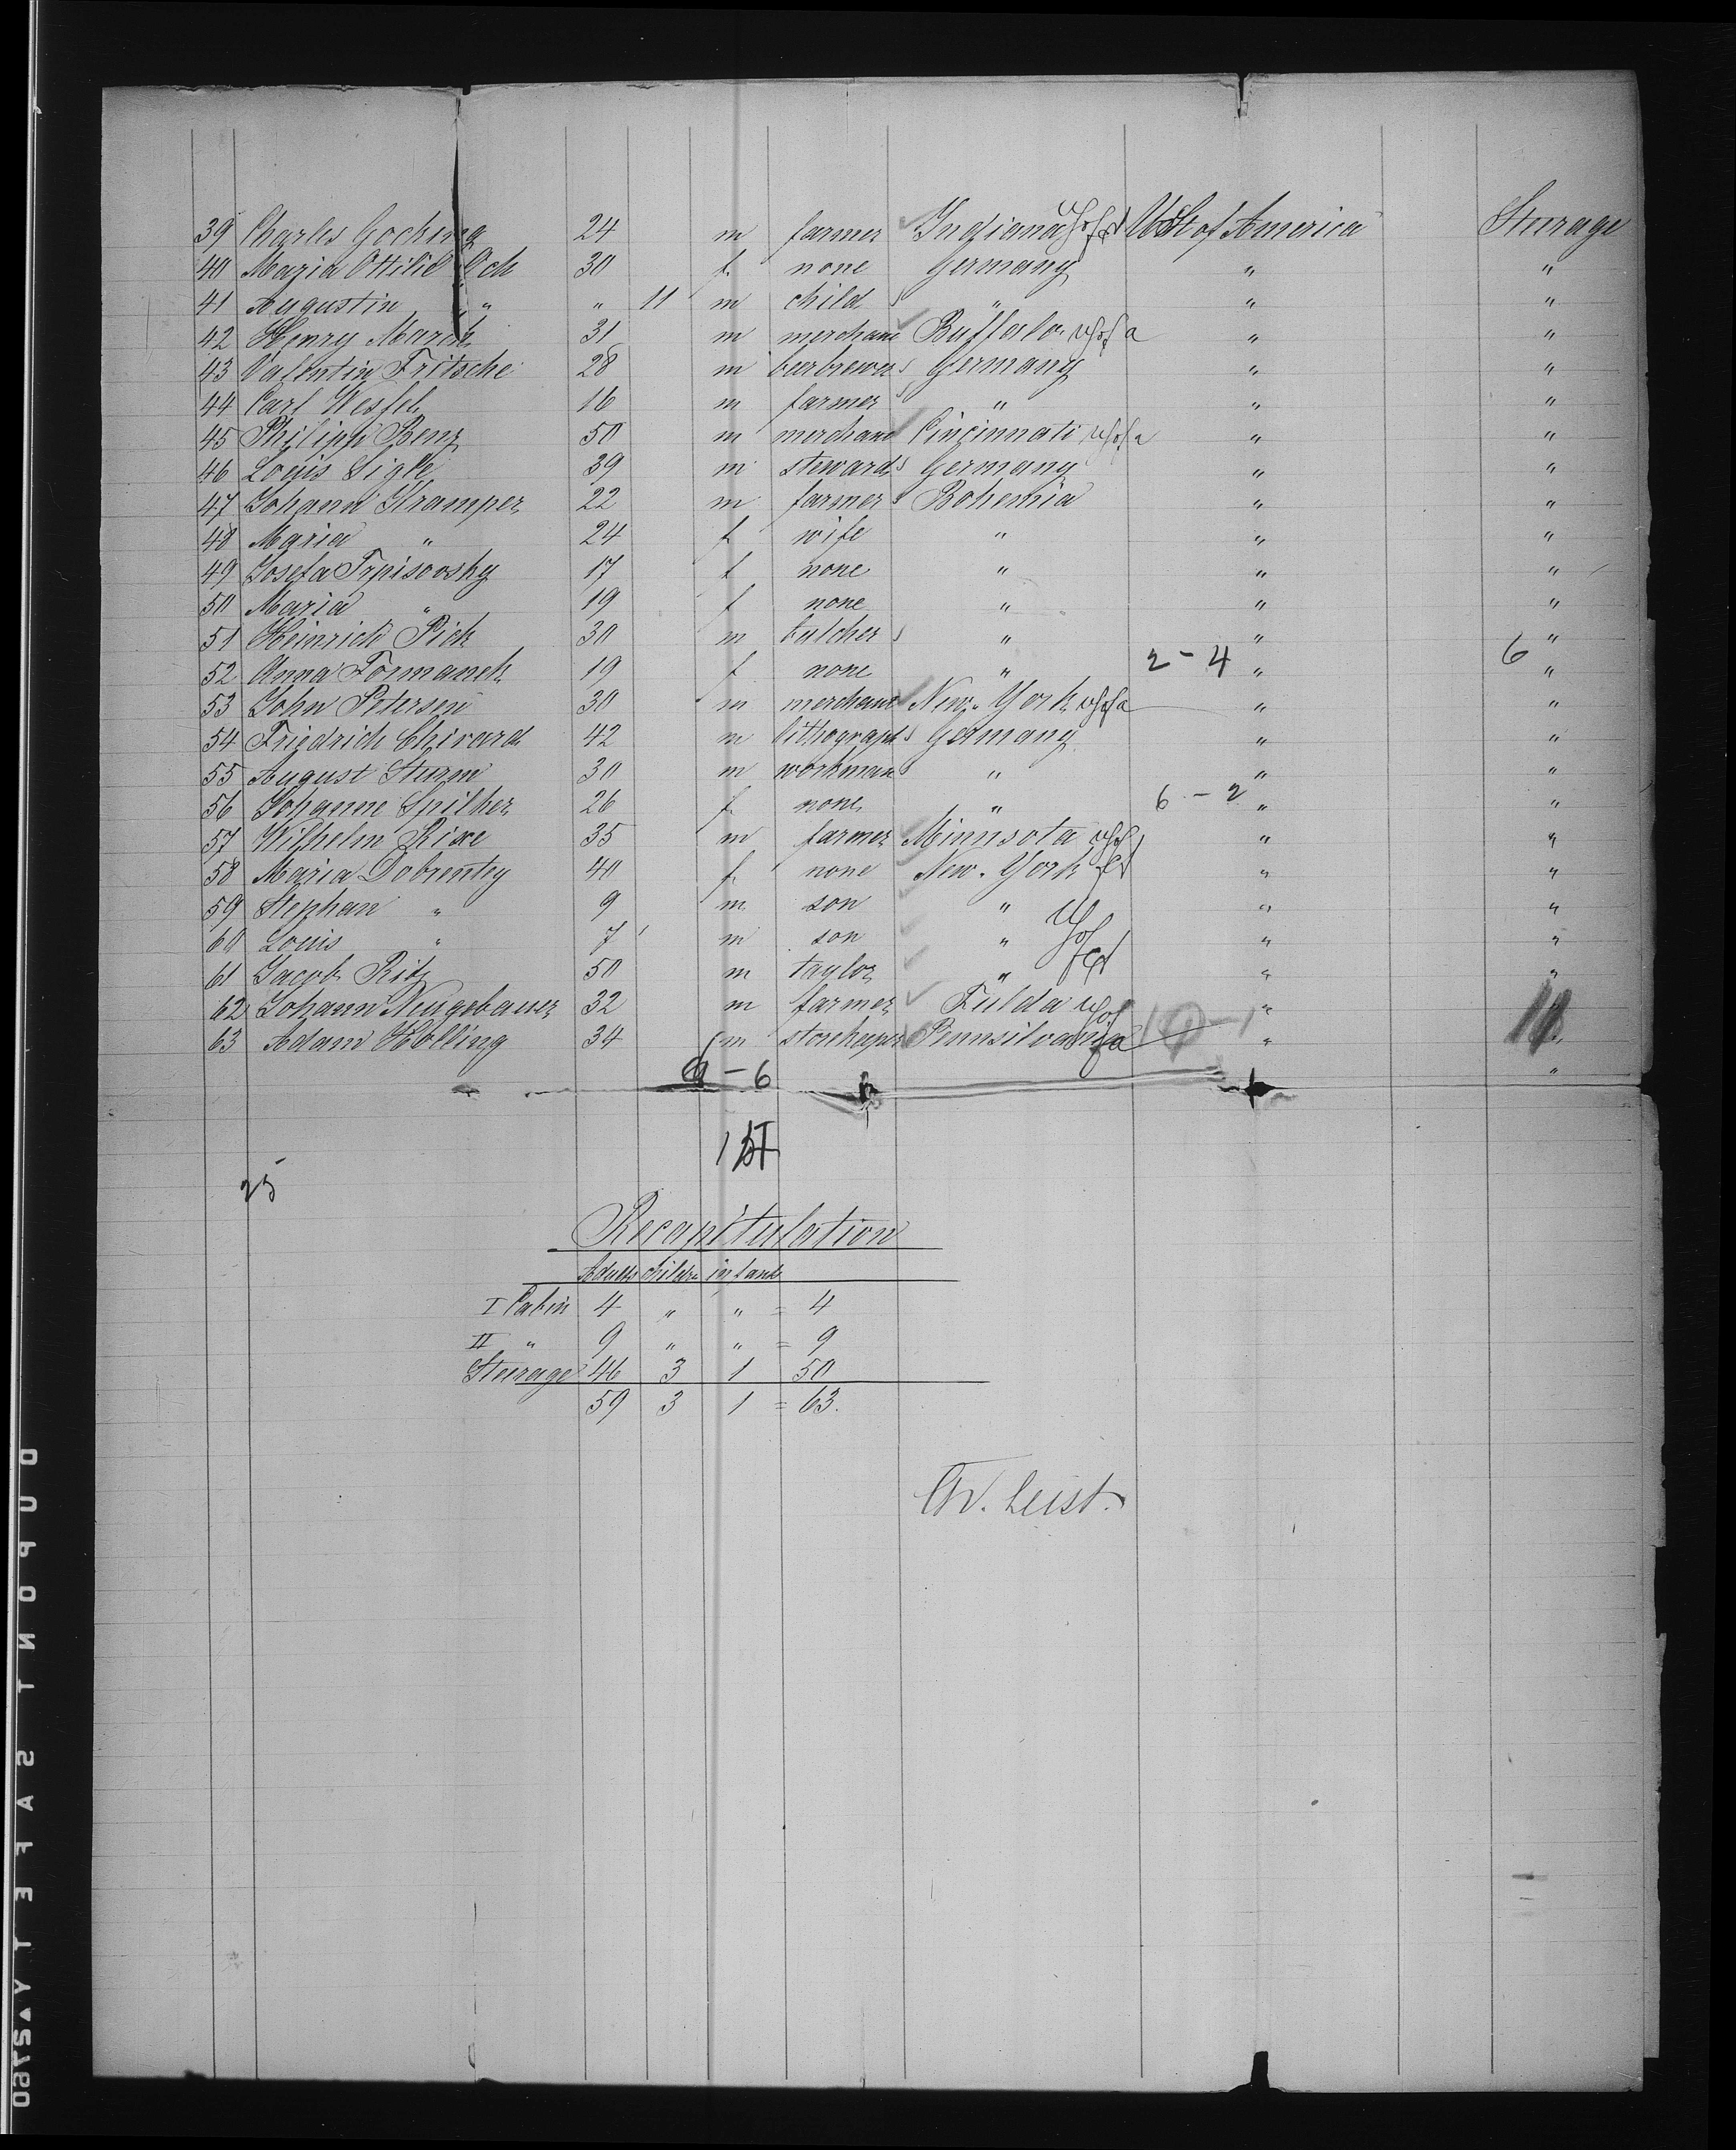 39 Charles Gocking 24 m farmer Indiana U S of A U St of America Steerage
40 Maria Ottilie Och 30 f none Germany " "
41 Augustin " " 11 m child " " "
42 Henry March 31 m merchant Buffalo U S of a " "
43 Valentin Fritsche 28 m beerbrewer Germany " "
44 Carl Wessel 16 m farmer " " "
45 Philipp Benz 50 m merchant Cincinnati U S of a " "
46 Louis Sigle 39 m steward Germany " "
47 Johann Kramper 22 m farmer Bohemia " "
48 Maria " 24 f wife " " "
49 Josefa Trpisovsky 17 f none " " "
50 Maria " 19 f none " " "
51 Heinrich Pick 30 m butcher " " "
52 Anna Formanek 19 f none " 2 - 4 " 6 "
53 John Petersen 30 m merchant New-York U S of a " "
54 Friedrich Chivard 42 m lithograph Germany " "
55 August Sturm 30 m workman " " "
56 Johanne Spilker 26 f none " 6 - 2 " "
57 Wilhelm Rixe 35 m farmer Minnsota U S of " "
58 Maria Dobrentey 40 f none New-York A " "
59 Stephan " 9 m son " U " "
60 Louis " 7 m son " S of " "
61 Jacob Ritz 50 m taylor " A " "
62 Johann Neugebauer 32 m farmer Fulda U S of " "
63 Adam Hölling 34 m storekeeper Pennsilvania a 10 - 1 " 11 "
- 6 "
25
Recapitulation
Adults childr infants
I Cabin 4 " " = 4
II " 9 " " = 9
Steerage 46 3 1 50
59 3 1 = 63.
Leist.
DUPONT SAFETY